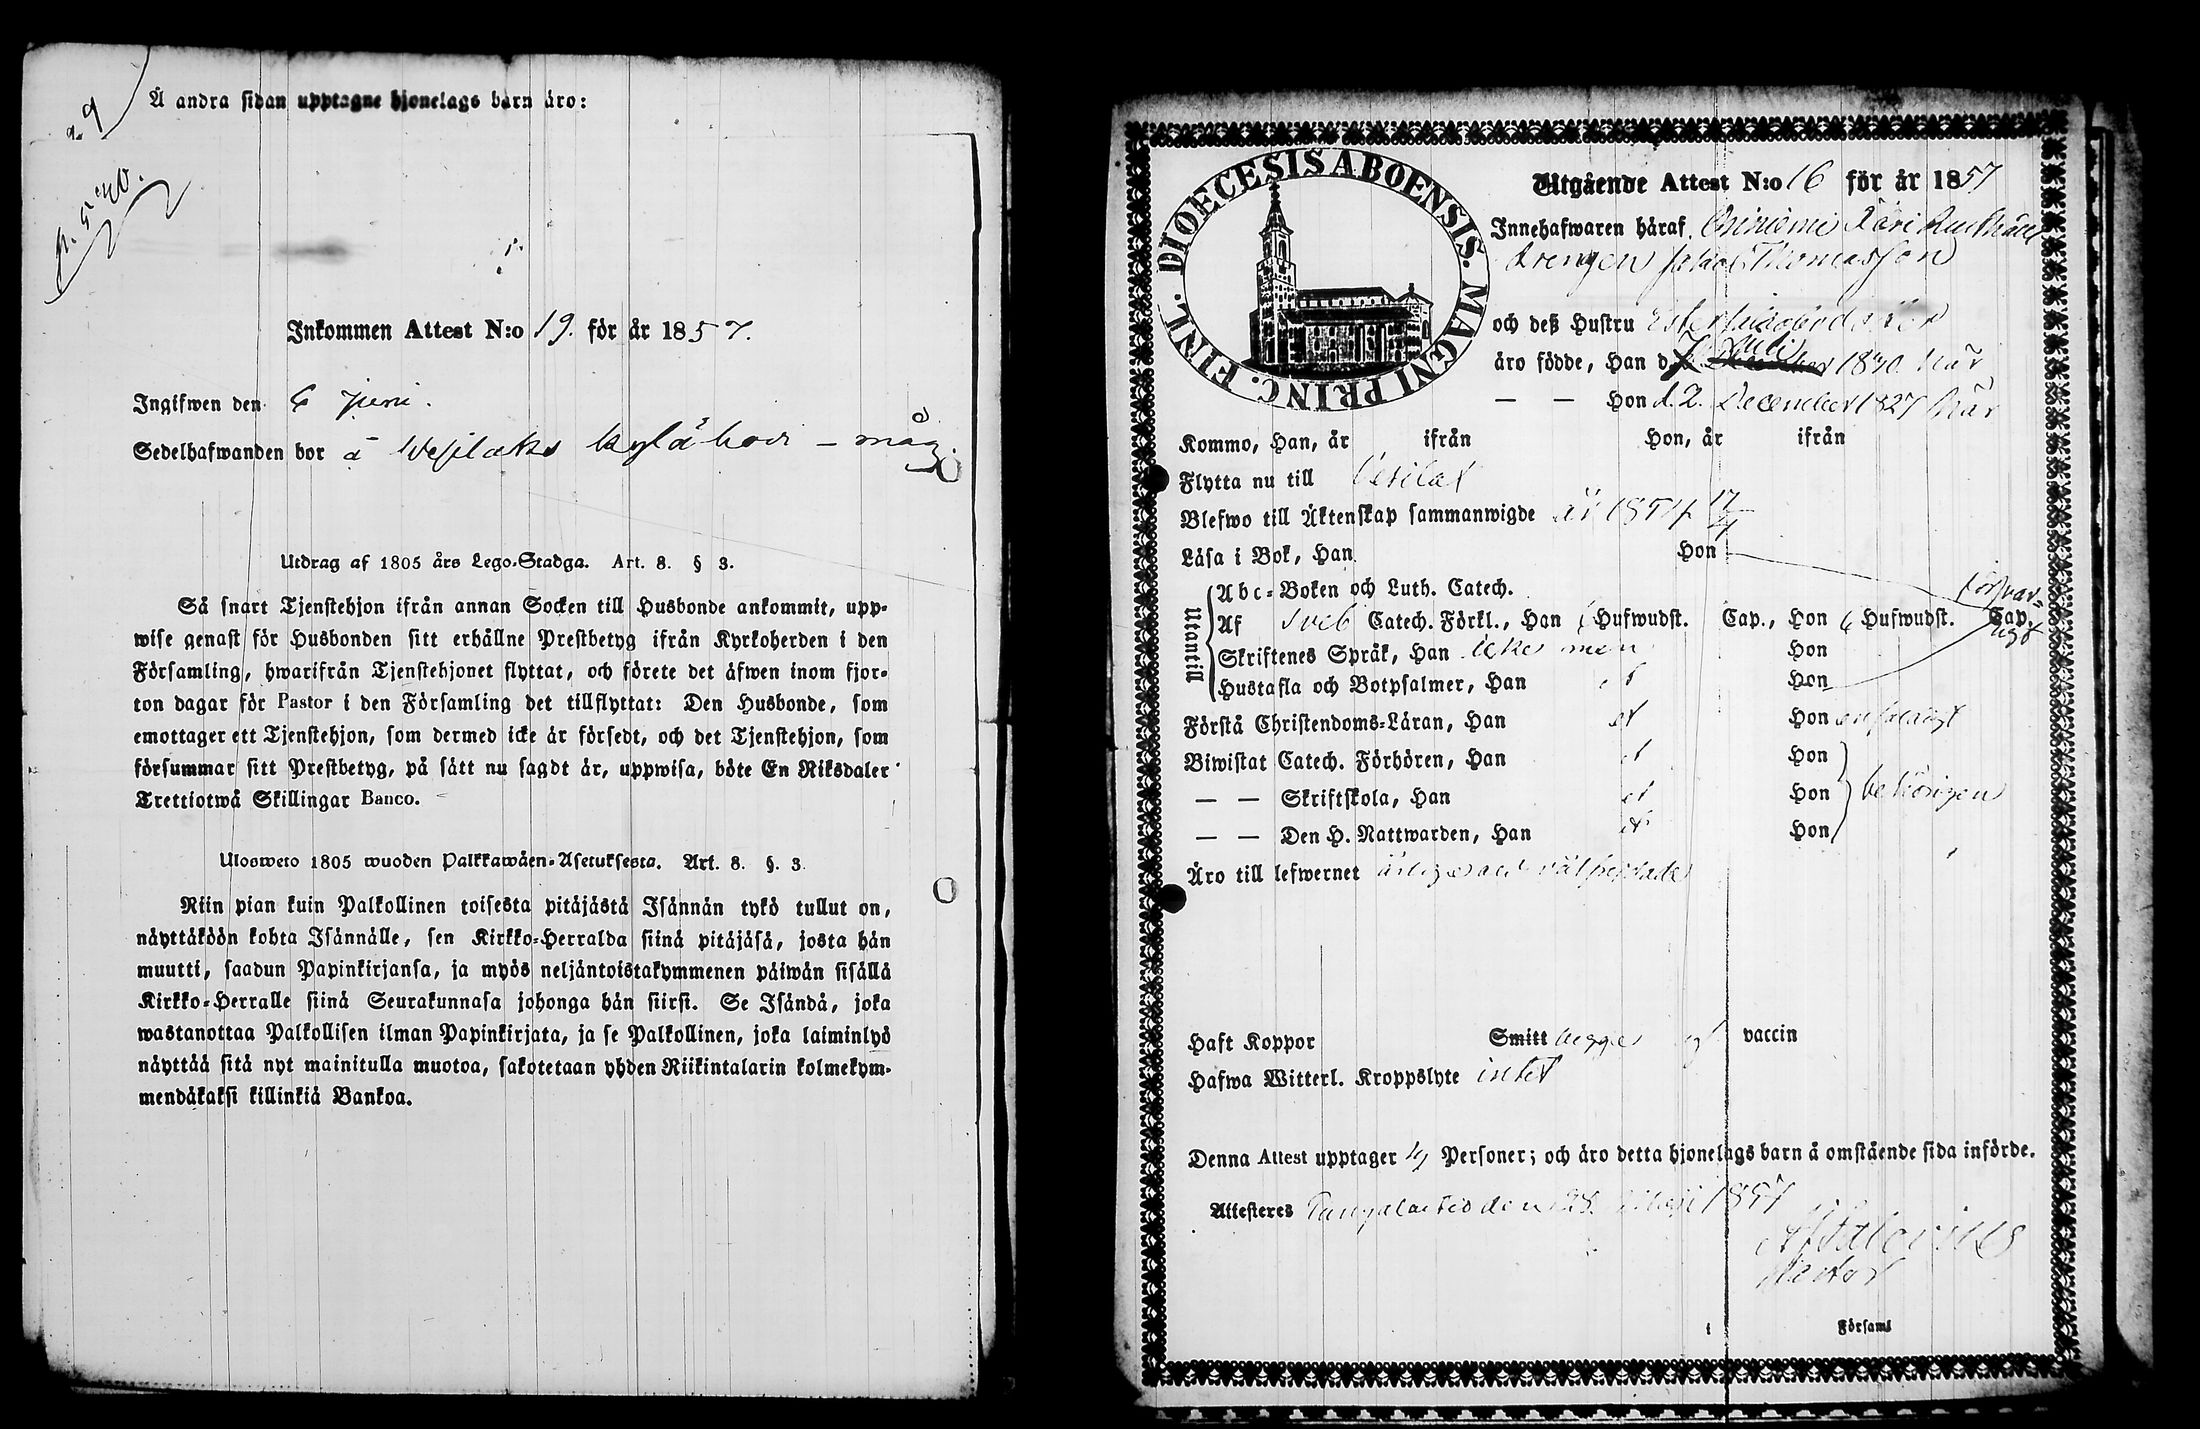 Å andra sidan upptagne hjonelags barn äro:
Inkommen Attest N:o 19. för år 1857.
Ingifwen den 6 juni.
Sedelhafwanden bor å Wesilaks kylä hovi – måg
Utdrag af 1805 års Lego-Stadga. Art. 8. § 3.
Så snart Tjenstehjon ifrån annan Socken till Husbonde ankommit, upp-
wise genast för Husbonden sitt erhållne Prestbetyg ifrån Kyrkoherden i den
Församling, hwarifrån Tjenstehjonet flyttat, och förete det äfwen inom fjor-
ton dagar för Pastor i den Församling det tillflyttat: Den Husbonde, som
emottager ett Tjenstehjon, som dermed icke är försedt, och det Tjenstehjon, som
försummar sitt Prestbetyg, på sätt nu sagdt är, uppwisa, böte En Riksdaler
Trettiotwå Skillingar Banco.
Ulosweto 1805 wuoden Palkkawäen-Asetuksesta. Art. 8. §. 3.
Niin pian kuin Palkollinen toisesta pitäjästä Isännän tykö tullut on,
näyttäköön kohta Isännälle, sen Kirkko-Herralda siinä pitäjäsä, josta hän
muutti, saadun Papinkirjansa, ja myös neljäntoistakymmenen päiwän sisällä
Kirkko-Herralle siinä Seurakunnasa johonga hän siirsi. Se Isändä, joka
wastanottaa Palkollisen ilman Papinkirjata, ja se Palkollinen, joka laiminlyö
näyttää sitä nyt mainitulla muotoa, sakotetaan yhden Riikintalarin kolmekym-
mendäkaksi killinkiä Bankoa.
DIOECESIS ABOENSIS. MAGNI PRINC. FINL.
Utgående Attest N:o 16 för år 1857
Innehafwaren häraf
drengen Jakob Thomasson
och deß Hustru
äro födde, Han d. Juli 1830 här
— — Hon d. 2. December 1827 här
Kommo, Han, år ifrån Hon, år ifrån
Flytta nu till Vesilax
Blefwo till Äktenskap sammanwigde år 1854 17/4
Läsa i Bok, Han Hon försvar-
ligt
Utantill
Abc-Boken och Luth. Catech.
Af Sveb Catech. Förkl., Han 6 Hufwudst. Cap., Hon 6 Hufwudst. Cap.
Skriftenes Språk, Han Hon
Hustafla och Botpsalmer, Han Hon
Förstå Christendoms-Läran, Han Hon
Biwistat Catech. Förhören, Han Hon
— — Skriftskola, Han Hon behörigen
— — Den H. Nattwarden, Han Hon
Äro till lefwernet ärlige och välfrejdade
Haft Koppor Smitt begge vaccin
Hafwa Witterl. Kroppslyte intet
Denna Attest upptager 4 Personer; och äro detta hjonelags barn å omstående sida införde.
Attesteres den 28. Maji 1857
i Förſaml